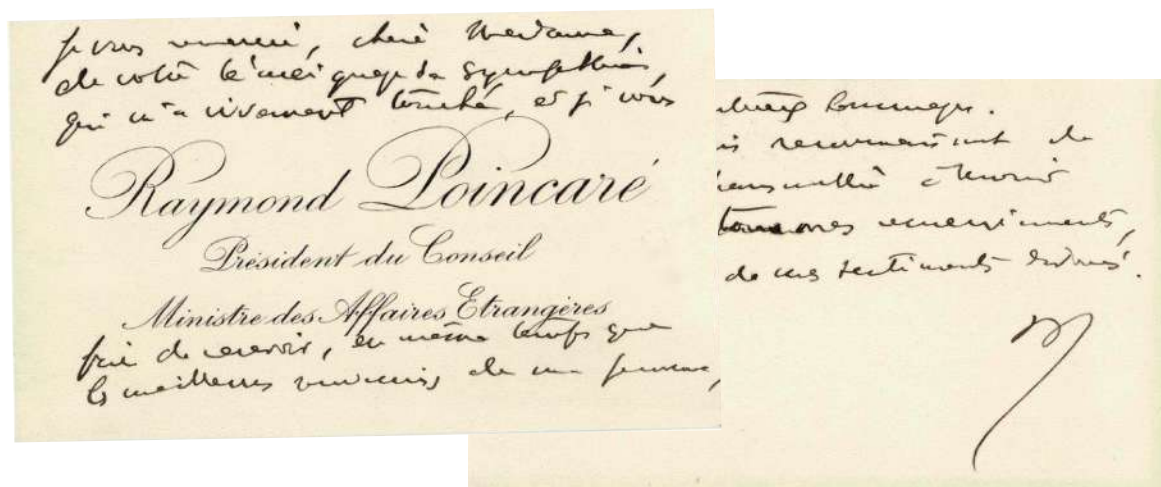 Je vous remercie, chère Madame,
de votre témoignage de sympathie,
qui m'a vivement touché, et je vous
Raymond Poincaré
Président du Conseil
Ministre des Affaires Etrangères
prie de recevoir, en même temps que
les meilleurs souvenirs de ma femme,
hommages.
is reconnaissant de
remerciements,
de mes sentiments dévoués.